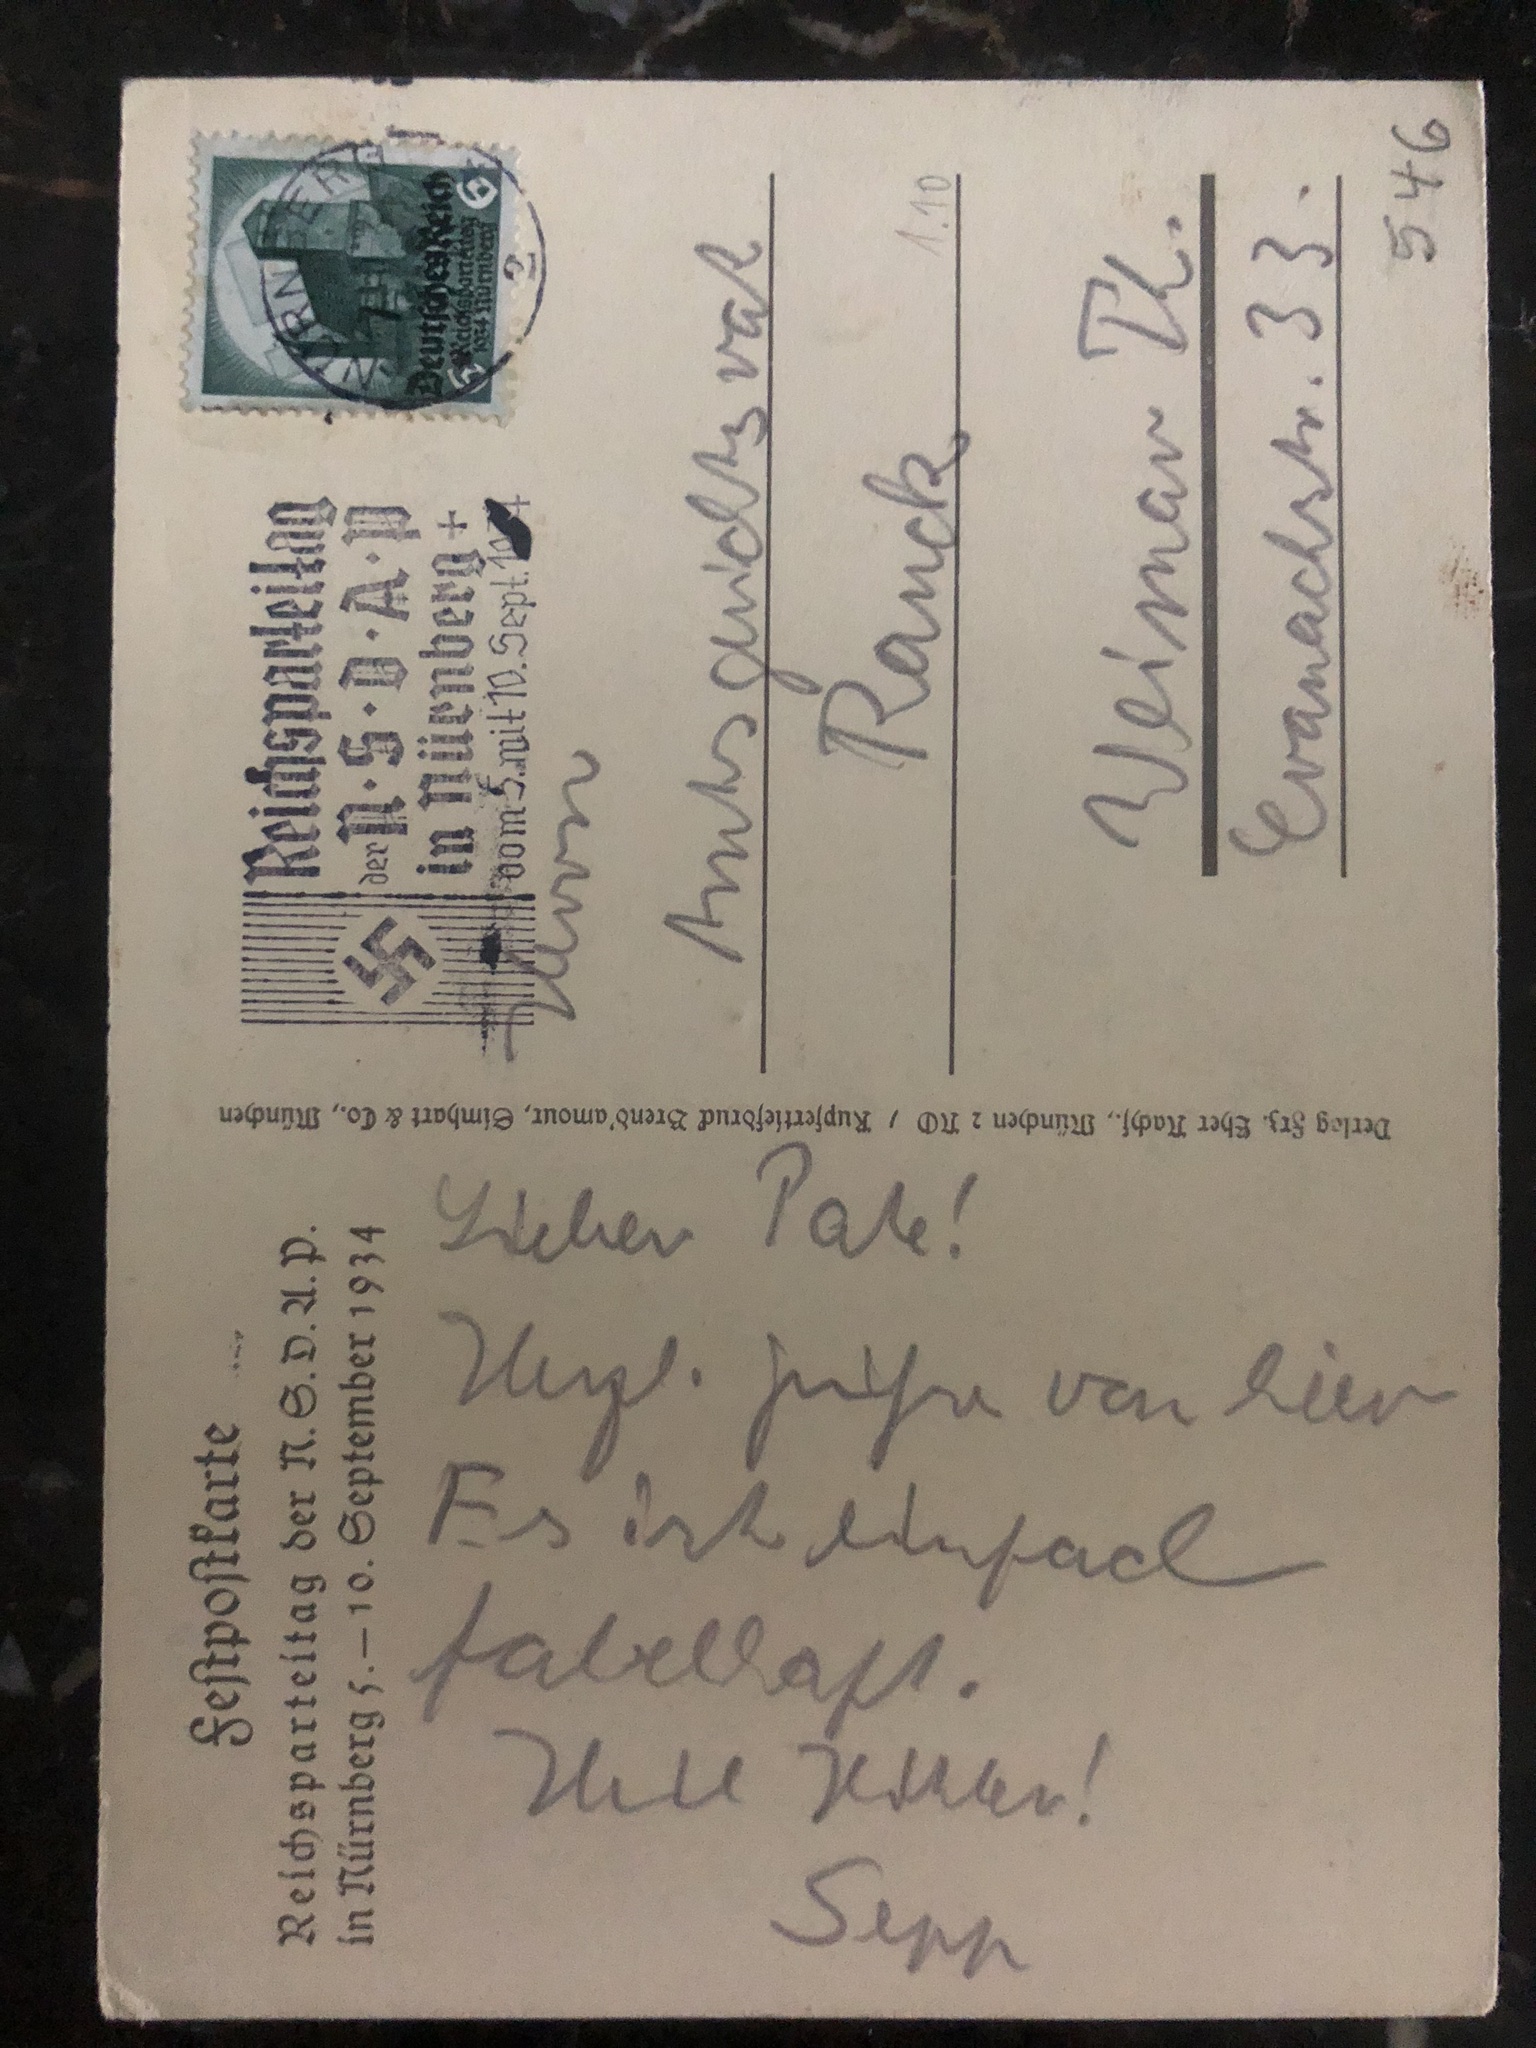 Festpostkarte
Reichsparteitag der N.S.D.A.P.
in Nürnberg 5.–10. September 1934
Lieber Pate!
Herzl. Grüße von hier
Es ist einfach
fabelhaft.
Heil Hitler!
Sepp
Verlag Frz. Eher Nachf., München 2 NO / Kupfertiefdruck Brend'amour, Simhart & Co., München
Reichsparteitag
der N·S·D·A·P
in Nürnberg +
vom 5. mit 10. Sept. 1934 +
NÜRNBERG
2
Deutsches Reich
6 Reichsparteitag 6
1934 Nürnberg
Herrn
Amtsgerichtsrat
Ranck
1.10
Weimar Th.
Cranachstr. 33.
546